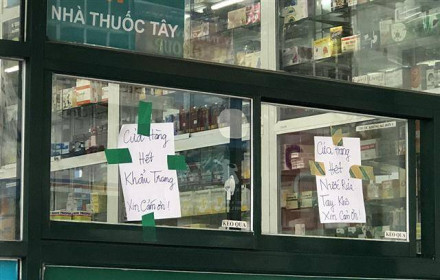 NHÀ THUỐC TÂY
Cửa Hàng
Hết
Khẩu Trang
Xin Cảm ơn!
KÉO QUA
Cửa Hàng
Hết
Nước Rửa
Tay Khô
Xin Cảm ơn!
KÉO QUA